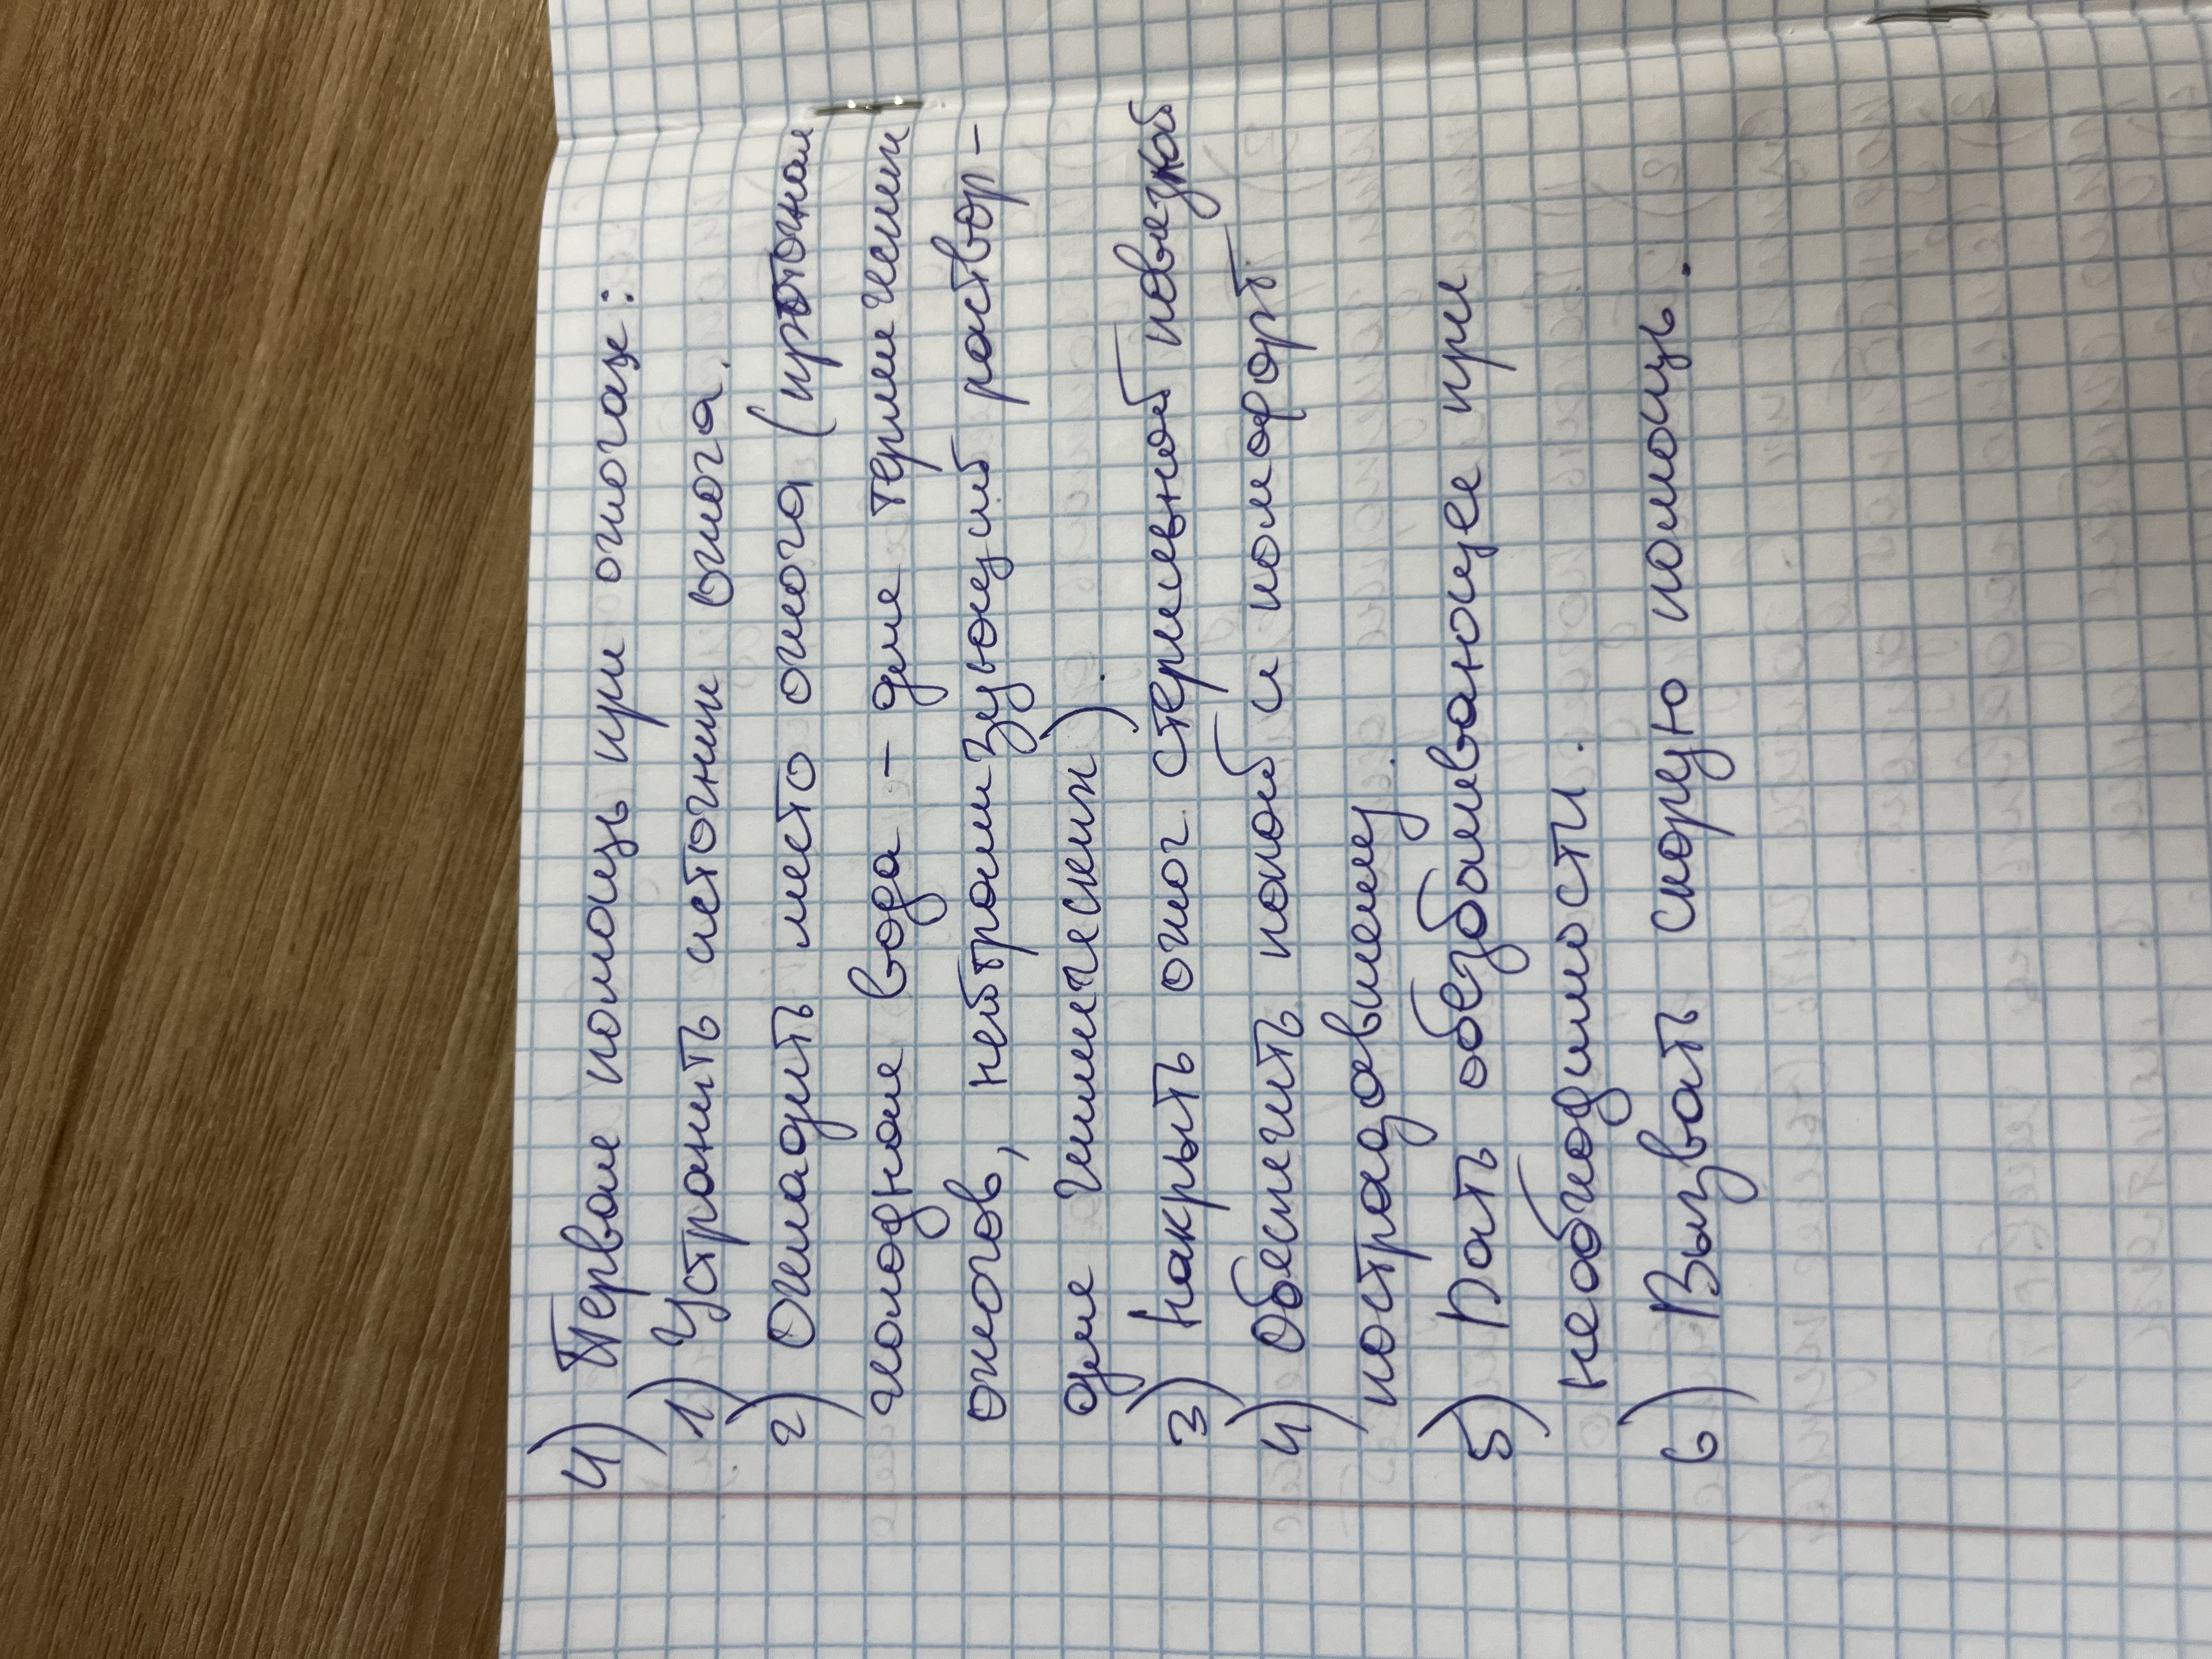 4) Первая помощь при ожогах:
1) Устранить источник ожога.
2) Охладить место ожога (проточная
холодная вода - для термических
ожогов, нейтрализующий раствор -
для химических).
3) Накрыть ожог стерильной повязкой
4) Обеспечить покой и комфорт
пострадавшему.
5) Дать обезболивающее при
необходимости.
6) Вызвать скорую помощь.